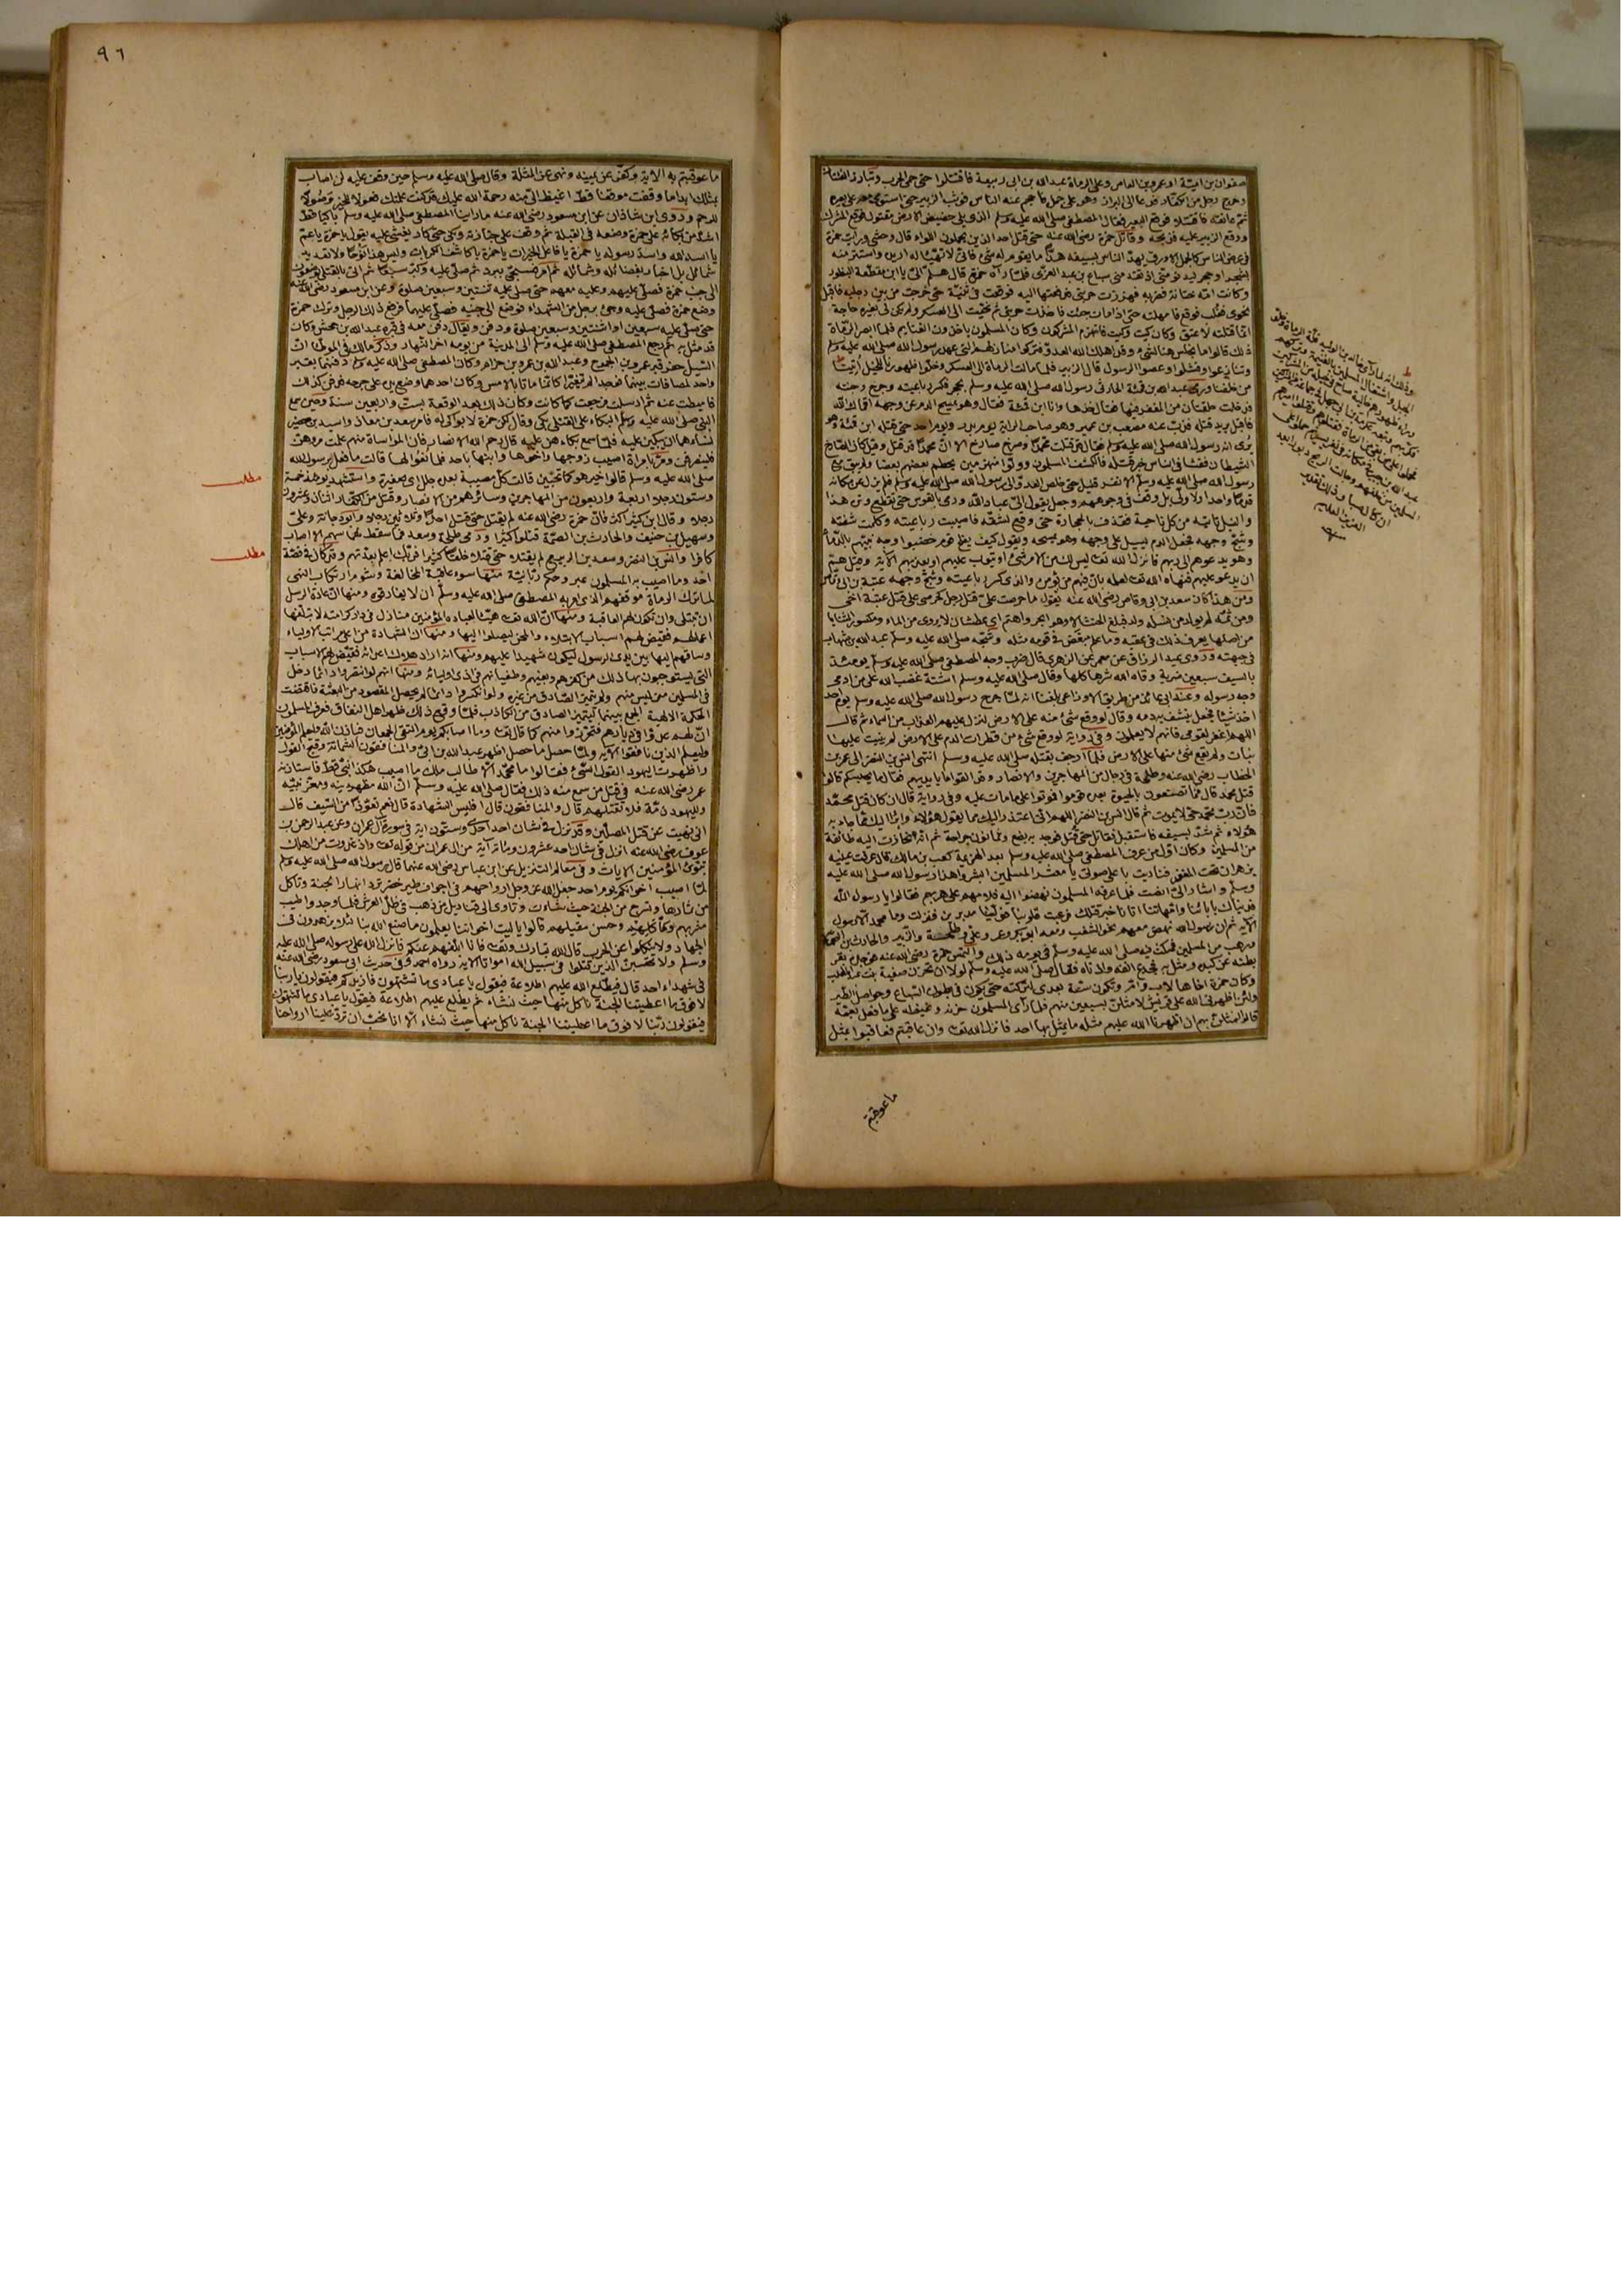 صفوان بن امية او عمرو بن العاص وعلى الرماة عبد الله بن ابي ربيعة فاقتتلوا حتى حمى الحرب وتبارز
وخرج رجل من الكفار فدعا الى البراز وهو على جمل فاحجم عنه الناس فوثب الزبير حتى استوى معه على بعيره
ثم عانقه فاقتتلا فوق البعير فقال المصطفى صلى الله عليه وسلم الذي يلي حضيض الارض مقتول فوقع المشرك
ووقع الزبير عليه فذبحه وقاتل حمزة رضي الله عنه حتى قتل احد الذين يحملون اللواء قال وحشي ورايت حمزة
في عرض الناس كالجمل الاورق يهد الناس بسيفه هدا ما يقوم له شئ فاني لاتهيأ له اريده واستتر منه
بشجر او حجر ليدنو مني اذ تقدمني سباع بن عبد العزى فلما رآه حمزة قال هلم الي يا ابن مقطعة البظور
وكانت امه ختانة فضربه فهززت حربتي فدفعتها اليه فوقعت في ثنيته حتى خرجت من بين رجليه فاقبل
نحوي فغلب فوقع فامهلته حتى اذا مات جئت فاخذت حربتي ثم تنحيت الى العسكر ولم يكن لي بغيره حاجة
انما قتلته لاعتق وكان كيت وكيت فانهزم المشركون وكان المسلمون ياخذون الغنايم فلما ابصر الرماة
ذلك قالوا ما نجلس هنا لشئ وقد اهلك الله العدو فتركوا منازلهم التي عهد رسول الله صلى الله عليه وسلم
وتنازعوا وفشلوا وعصوا الرسول قال الزبير فلما مالت الرماة الى العسكر وخلوا ظهورنا للخيل أتينا
من خلفنا ورمى عبد الله بن قمئة الحارثي رسول الله صلى الله عليه وسلم بحجر فكسر رباعيته وجرح وجنته
فدخلت حلقتان من المغفر فيها فقال خذها وانا ابن قمئة فقال وهو يمسح الدم عن وجهه اقمأك الله
فاقبل يريد قتله فذب عنه مصعب بن عمير وهو صاحب الراية يوم بدر ويوم احد حتى قتله ابن قمئة وهو
يرى انه رسول الله صلى الله عليه وسلم فقال قد قتلت محمدا وصرخ صارخ الا ان محمدا قد قتل وقيل كان الصارخ
الشيطان ففشا في الناس خبر قتله فانكشف المسلمون وولوا منهزمين يحطم بعضهم بعضا ولم يبق مع
رسول الله صلى الله عليه وسلم الا نفر قليل حتى خلص العدو الى رسول الله صلى الله عليه وسلم فلم يزل عن مكانه
قدما واحدا ولا ولى بل وقف في وجوههم وجعل يقول الي عباد الله ورمى بالقوس حتى تقطع وترها
والنبل تاتيه من كل ناحية فقذف بالحجارة حتى وقع لشقه فاصيبت رباعيته وكلمت شفته
وشج وجهه فجعل الدم يسيل على وجهه وهو يمسحه ويقول كيف يفلح قوم خضبوا وجه نبيهم بالدماء
وهو يدعوهم الى ربهم فانزل الله تعالى ليس لك من الامر شئ او يتوب عليهم او يعذبهم الآية وقيل هم
ان يدعو عليهم فنهاه الله تعالى لعلمه بان فيهم من يؤمن والذي كسر رباعيته وشج وجهه عتبة بن ابي وقاص
ومن هذا كان سعد بن ابي وقاص رضي الله عنه يقول ما حرصت على قتل رجل كحرصي على قتل عتبة اخي
ومن ثمه لم يولد من نسله ولد فبلغ الحنث الا وهو ابخر واهتم اي عطشان لا يروى من الماء ومكسور الثنايا
من اصلها يعرف ذلك في عقبه وما علم مبغض في قومه مثله وشجه صلى الله عليه وسلم عبد الله بن شهاب
في جبهته وروى عبد الرزاق عن معمر عن الزهري قال ضرب وجه المصطفى صلى الله عليه وسلم يومئذ
بالسيف سبعين ضربة وقاه الله شرها كلها وقال صلى الله عليه وسلم اشتد غضب الله على من ادمى
وجه رسوله وعند ابن عائذ من طريق الاوزاعي بلغنا انه لما جرح رسول الله صلى الله عليه وسلم يوم احد
اخذ شيئا فجعل ينشف به دمه وقال لو وقع شئ منه على الارض لنزل عليهم العذاب من السماء ثم قال
اللهم اغفر لقومي فانهم لا يعلمون وفي رواية لو وقع شئ من قطرات الدم على الارض لم ينبت عليها
نبات ولم يقع شئ منها على الارض فلما ارجف بقتله صلى الله عليه وسلم انتهى انس بن النضر الى عمر بن
الخطاب رضي الله عنه وطلحة في رجال من المهاجرين والانصار وقد القوا ما بايديهم فقال ما يحبسكم قالوا
قتل محمد قال فما تصنعون بالحيوة بعده قوموا فموتوا على ما مات عليه وفي رواية قال ان كان قتل محمد
فان رب محمد حي لا يموت ثم قال انس بن النضر اللهم اني اعتذر اليك مما يقول هؤلاء وابرأ اليك مما جاء به
هؤلاء ثم شد بسيفه فاستقبل فقاتل حتى قتل فوجد به بضع وثمانون جراحة ثم انه انحازت اليه طائفة
من المسلمين وكان اول من عرف المصطفى صلى الله عليه وسلم بعد الهزيمة كعب بن مالك قال عرفت عينيه
تزهران تحت المغفر فناديت باعلى صوتي يا معشر المسلمين ابشروا هذا رسول الله صلى الله عليه
وسلم واشار الي انصت فلما عرفه المسلمون نهضوا اليه فلامهم على هربهم فقالوا يا رسول الله
فديناك بابائنا وامهاتنا اتانا خبر قتلك فرعبت قلوبنا فولينا مدبرين فنزلت وما محمد الا رسول
الاية ثم ان رسول الله نهض معهم نحو الشعب ومعه ابو بكر وعمر وعلي وطلحة والزبير والحارث بن الصمة
ورهط من المسلمين فمكث فيه صلى الله عليه وسلم في يومه ذلك والتمس حمزة رضي الله عنه فوجده بقر
بطنه عن كبده ومثل به فجدع انفه واذناه فقال صلى الله عليه وسلم لولا ان تحزن صفية بنت عبد المطلب
وكان حمزة اخاها لاب وام وتكون سنة بعدي لتركته حتى يكون في بطون السباع وحواصل الطير
ولئن اظهرني الله على قريش لامثلن بسبعين منهم فلما رأى المسلمون حزنه وغيظه على ما فعل بعمه
قالوا لنمثلن بهم ان اظهرنا الله عليهم مثلة ما يمثل بها احد فانزل الله تعالى وان عاقبتم فعاقبوا بمثل
ما عوقبتم
٩٦
ما عوقبتم به الاية وكفر عن يمينه ونهى عن المثلة وقال صلى الله عليه وسلم حين وقف عليه لن اصاب
بمثلك ابدا ما وقفت موقفا قط اغيظ الي منه رحمة الله عليك قد كنت علمتك فعولا للخير وصولا
للرحم وروى ابن شاذان عن ابن مسعود رضي الله عنه ما راينا المصطفى صلى الله عليه وسلم باكيا قط
اشد من بكائه على حمزة وضعه في القبلة ثم وقف على جنازته وبكى حتى كاد يغشى عليه يقول يا حمزة يا عم
يا اسد الله واسد رسوله يا حمزة يا فاعل الخيرات يا حمزة يا كاشف الكربات وليس هذا نوحا ولا تعديد
شمائل بل اخبار بفضائله وشمائله ثم امر فسجي ببرد ثم صلى عليه وكبر سبعا ثم اتى بالقتلى يوضعون
الى جنب حمزة فصلى عليهم وعليه معهم حتى صلى عليه ثنتين وسبعين صلوة وعن ابن مسعود رضي الله عنه
وضع حمزة فصلى عليه وجئ برجل من الشهداء فوضع الى جنبه فصلى عليهما فرفع ذلك الرجل وترك حمزة
حتى صلى عليه سبعين او اثنتين وسبعين صلوة ودفن ويقال دفن معه في قبره عبد الله بن جحش وكان
قد مثل به ثم رجع المصطفى صلى الله عليه وسلم الى المدينة من يومه اخر النهار وذكر مالك في الموطأ ان
السيل حفر قبر عمرو بن الجموح وعبد الله بن عمرو بن حرام وكان المصطفى صلى الله عليه وسلم دفنهما بقبر
واحد لمصافات بينهما فوجدا لم يتغيرا كانما ماتا بالامس وكان احدهما وضع يده على جرحه فدفن كذلك
فاميطت عنه ثم ارسلت فرجعت كما كانت وكان ذلك بعد الوقعة بست واربعين سنة وحين سمع
النبي صلى الله عليه وسلم البكاء على القتلى بكى وقال لكن حمزة لا بواكي له فامر سعد بن معاذ واسيد بن حضير
نساءهما ان يبكين عليه فلما سمع بكاءهن عليه قال رحم الله الانصار فان المواساة منهم علمت مروهن
فلينصرفن ومر بامراة اصيب زوجها واخوها وابنها باحد فلما نعوا لها قالت ما فعل رسول الله
صلى الله عليه وسلم قالوا خير هو كما تحبين قالت كل مصيبة بعده جلل اي صغيرة واستشهد يومئذ خمسة
وستون رجلا اربعة واربعون من المهاجرين وسائرهم من الانصار وقتل من الكفار اثنان وعشرون
مطلب
رجلا وقال ابن كثير
كافرا وانس بن النضر وسعد بن الربيع لم يقتلا حتى قتلا خلقا كثيرا
مطلب
احد وما اصيب به المسلمون عبر وحكم ربانية منها سوء عاقبة المخالفة وشوم ارتكاب النهي
لما ترك الرماة موقفهم الذي امر به المصطفى صلى الله عليه وسلم ان لا يفارقوه ومنها ان عادة الرسل
ان تبتلى وان تكون لهم العاقبة ومنها ان الله تعالى هيأ لعباده المؤمنين منازل في دار كرامته لا تبلغها
اعمالهم فقيض لهم اسباب الابتلاء والمحن ليصلوا اليها ومنها ان الشهادة من اعلى مراتب الاولياء
وساقهم اليها بين يدي الرسول ليكون شهيدا عليهم ومنها انه اراد هلاك اعدائه فقيض لهم الاسباب
التي يستوجبون بها ذلك من كفرهم وبغيهم وطغيانهم في اذى اوليائه ومنها انهم لو انتصروا دائما دخل
في المسلمين من ليس منهم ولم يتميز الصادق من غيره ولو انكسروا دائما لم يحصل المقصود من البعثة فاقتضت
الحكمة الالهية الجمع بينهما ليتميز الصادق من الكاذب فلما وقع ذلك ظهر اهل النفاق فعرف المسلمون
ان لهم عدوا في ديارهم فتحرزوا منهم كما قال تعالى وما اصابكم يوم التقى الجمعان فباذن الله وليعلم المؤمنين
وليعلم الذين نافقوا الاية ولما حصل ما حصل اظهر عبد الله بن ابي والمنافقون الشماتة وقبح القول
واظهرت اليهود القول السئ فقالوا ما محمد الا طالب ملك ما اصيب هكذا نبي قط فاستاذنه
عمر رضي الله عنه في قتل من سمع منه ذلك فقال صلى الله عليه وسلم ان الله مظهر دينه ومعز نبيه
ولليهود ذمة فلا تقتلهم قال والمنافقون قال اليس الشهادة قال نعم تعوذا من السيف قال
اني نهيت عن قتل المصلين وقد نزل في شان احد احدى وستون اية في سورة آل عمران وعن عبد الرحمن بن
عوف رضي الله عنه انزل في شان احد عشرون ومائة آية من ال عمران من قوله تعالى واذ غدوت من اهلك
تبوئ المؤمنين الايات وفي معالم التنزيل عن ابن عباس رضي الله عنهما قال رسول الله صلى الله عليه وسلم
لما اصيب اخوانكم يوم احد جعل الله عز وجل ارواحهم في اجواف طير خضر ترد انهار الجنة وتاكل
من ثمارها وتسرح من الجنة حيث شاءت وتاوى الى قناديل من ذهب في ظل العرش فلما وجدوا طيب
مشربهم وماكلهم وحسن مقيلهم قالوا يا ليت اخواننا يعلمون ما صنع الله بنا لئلا يزهدون في
الجهاد ولا ينكلوا عن الحرب قال الله تبارك وتعالى فانا ابلغهم عنكم فانزل الله على رسوله صلى الله عليه
وسلم ولا تحسبن الذين قتلوا في سبيل الله امواتا الاية رواه احمد وفي حديث ابن مسعود رضي الله عنه
في شهداء احد قال فيطلع الله عليهم اطلاعة فيقول يا عبادي ما تشتهون فازيدكم فيقولون يا ربنا
لا فوق ما اعطيتنا الجنة ناكل منها حيث نشاء ثم يطلع عليهم اطلاعة فيقول يا عبادي ما تشتهون
فيقولون ربنا لا فوق ما اعطيتنا الجنة ناكل منها حيث نشاء الا انا نحب ان ترد علينا ارواحنا